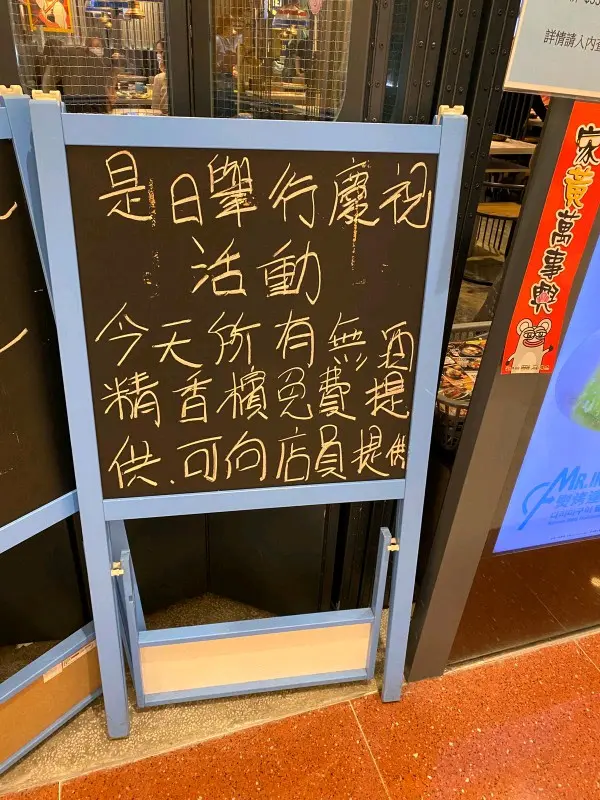 詳情請入內查
是日舉行慶視
活動
今天所有無酒
精香檳免費提
供.可向店員提供
家黃萬事興
MR.